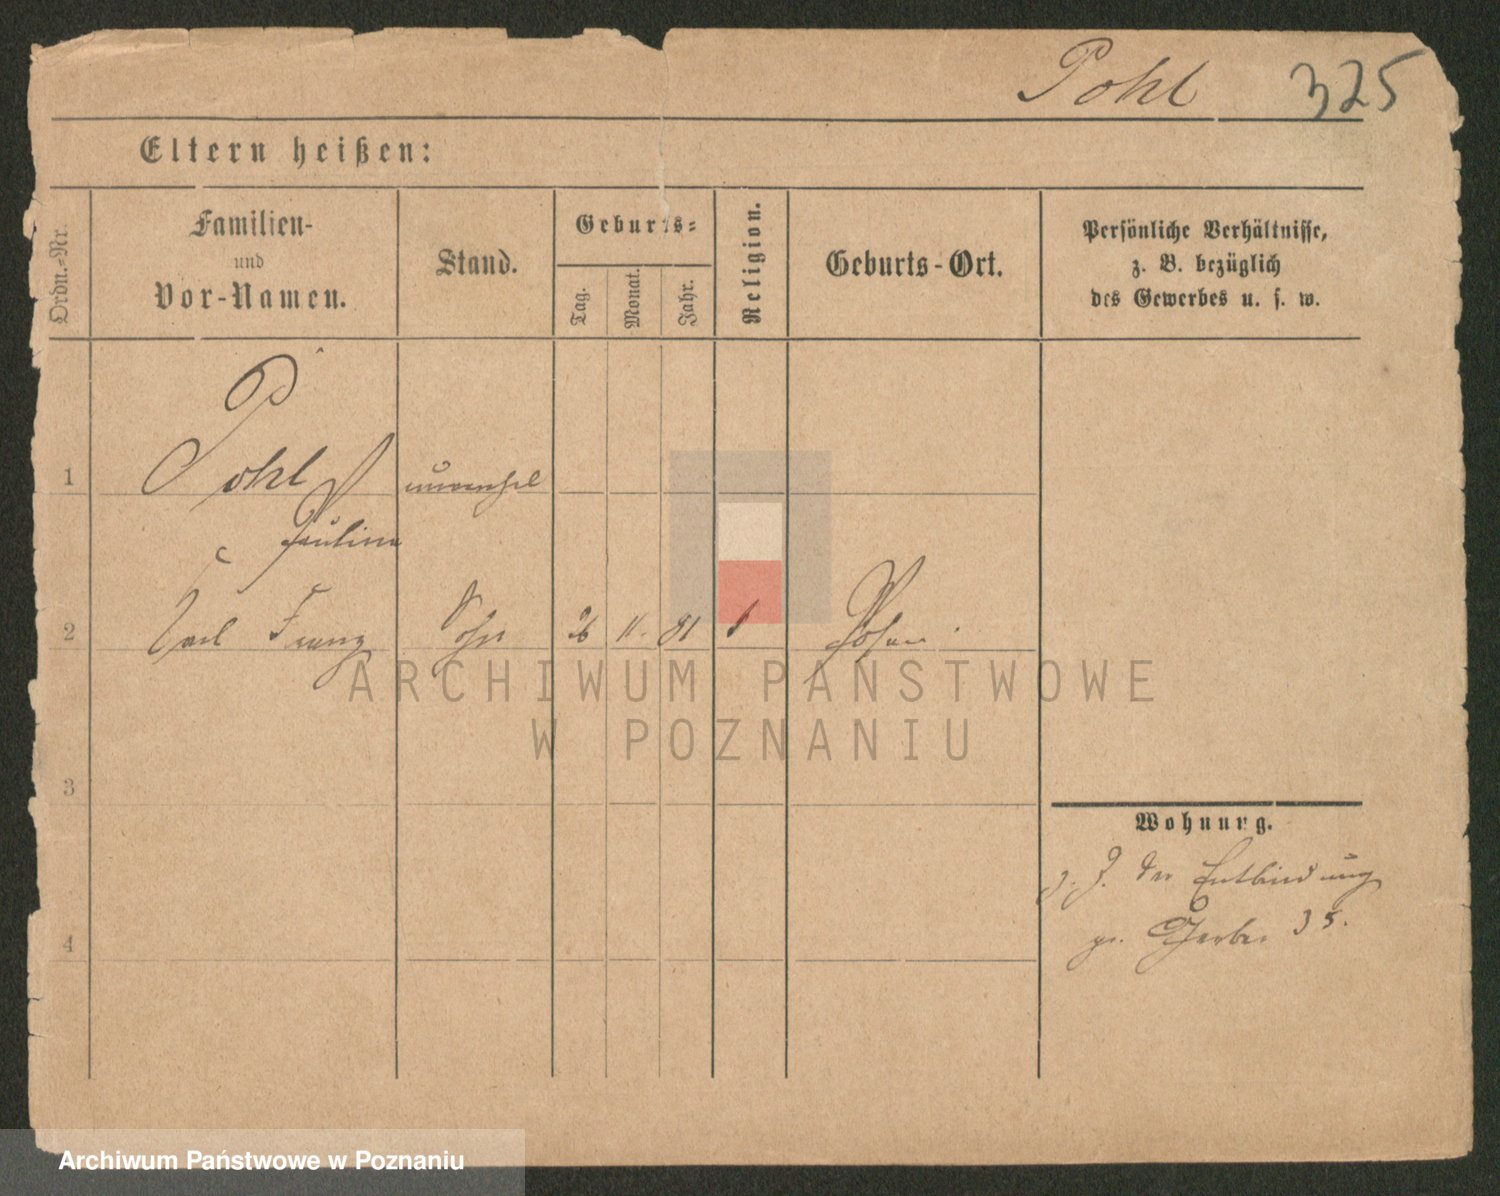 Pohl 325
Eltern heißen:
Ordn.-Nr.
Familien-
und
Vor-Namen.
Stand.
Geburts-
Tag.
Monat.
Jahr.
Religion.
Geburts-Ort.
Persönliche Verhältnisse,
z. B. bezüglich
des Gewerbes u. s. w.
1 Pohl unverehel
Pauline
2 Carl Franz Sohn 26 11. 81 Posen.
3
4
Wohnung.
z. Z. der Entbindung
gr. Gerber 35.
ARCHIWUM PAŃSTWOWE
W POZNANIU
Archiwum Państwowe w Poznaniu